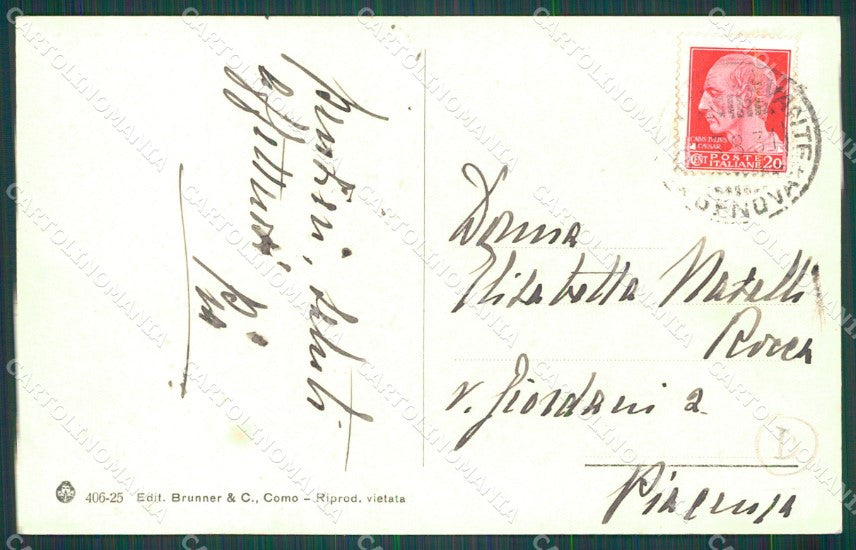 saluti
affettuosi
Pio
CAIVS IVLIVS
CAESAR
CENT POSTE
ITALIANE 20
GENOVA
Donna
Elisabetta Naselli
Rocca
v. Giordani 2
Piacenza
L
406-25 Edit. Brunner & C., Como – Riprod. vietata
CARTOLINOMANIA